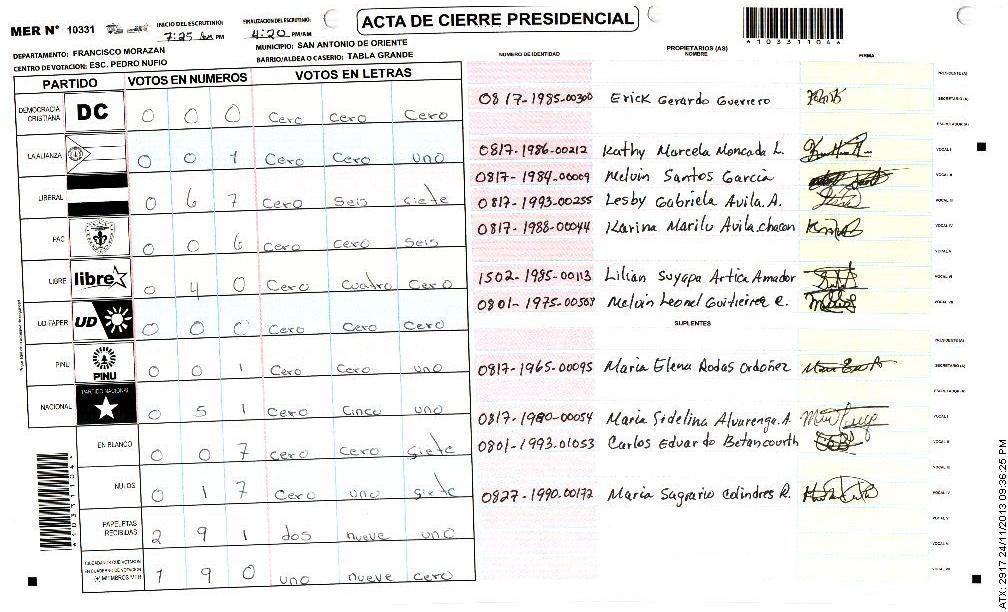 MER N° 10331
INICIO DEL ESCRUTINIO:
7:25 am PM
FINALIZACION DEL ESCRUTINIO:
4:20 PM/AM
ACTA DE CIERRE PRESIDENCIAL
DEPARTAMENTO: FRANCISCO MORAZAN
MUNICIPIO: SAN ANTONIO DE ORIENTE
CENTRO DE VOTACION: ESC. PEDRO NUFIO
BARRIO/ALDEA O CASERIO: TABLA GRANDE
PARTIDO VOTOS EN NUMEROS VOTOS EN LETRAS
DEMOCRACIA CRISTIANA DC 0 0 0 Cero Cero Cero
LA ALIANZA 0 0 1 Cero Cero uno
LIBERAL 0 6 7 Cero Seis siete
PAC 0 0 6 Cero Cero Seis
LIBRE libre 0 4 0 Cero Cuatro Cero
UD-FAPER UD 0 0 0 Cero Cero Cero
PINU PINU 0 0 1 Cero Cero uno
NACIONAL PARTIDO NACIONAL 0 5 1 Cero Cinco uno
EN BLANCO 0 0 7 Cero Cero Siete
NULOS 0 1 7 Cero uno Siete
PAPELETAS RECIBIDAS 2 9 1 dos nueve uno
CIUDADANOS QUE VOTARON EN CUADERNO DE VOTACION (+) MIEMBROS MER 1 9 0 uno nueve cero
NUMERO DE IDENTIDAD PROPIETARIOS (AS) NOMBRE FIRMA
PRESIDENTE(A)
0817-1985-00300 Erick Gerardo Guerrero SECRETARIO(A)
ESCRUTADOR(A)
0817-1986-00212 Kathy Marcela Moncada L. VOCAL I
0817-1984-00009 Melvin Santos Garcia VOCAL II
0817-1993-00255 Lesby Gabriela Avila. A. VOCAL III
0817-1988-00044 Karina Marilu Avila chacon VOCAL IV
VOCAL V
1502-1985-00113 Lilian Suyapa Artica Amador VOCAL VI
0801-1975-00508 Melvin Leonel VOCAL VII
SUPLENTES
PRESIDENTE(A)
0817-1965-00095 Maria Elena Rodas Ordoñez SECRETARIO(A)
ESCRUTADOR(A)
0817-1980-00054 Maria Sidelina Alvarenga. A VOCAL I
0801-1993-01053 Carlos Eduardo Betancourth VOCAL II
VOCAL III
0827-1990-00172 Maria Sagrario Colindres R. VOCAL IV
VOCAL V
VOCAL VI
VOCAL VII
ATX: 2917 24/11/2013 09:36:25 PM